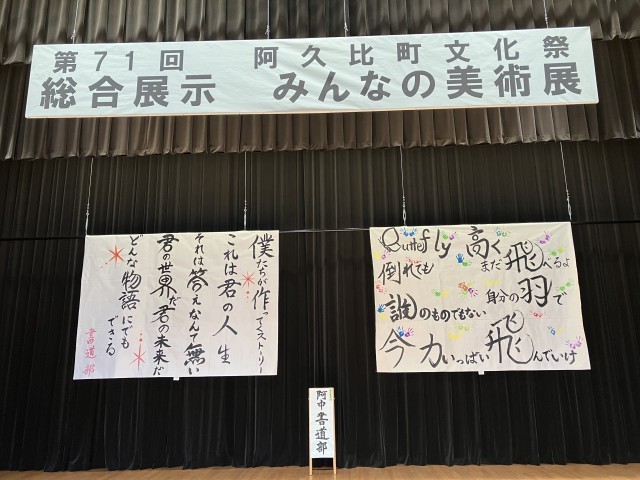 第71回 阿久比町文化祭
総合展示 みんなの美術展
僕たちが作ってくストーリー
これは君の人生
それは答えなんて無い
君の世界だ君の未来だ
どんな物語にでも
できる
書道部
Butterfly 高く
まだ飛べるよ
倒れても
自分の羽で
誰のものでもない
今 力いっぱい飛んでいけ
阿中書道部